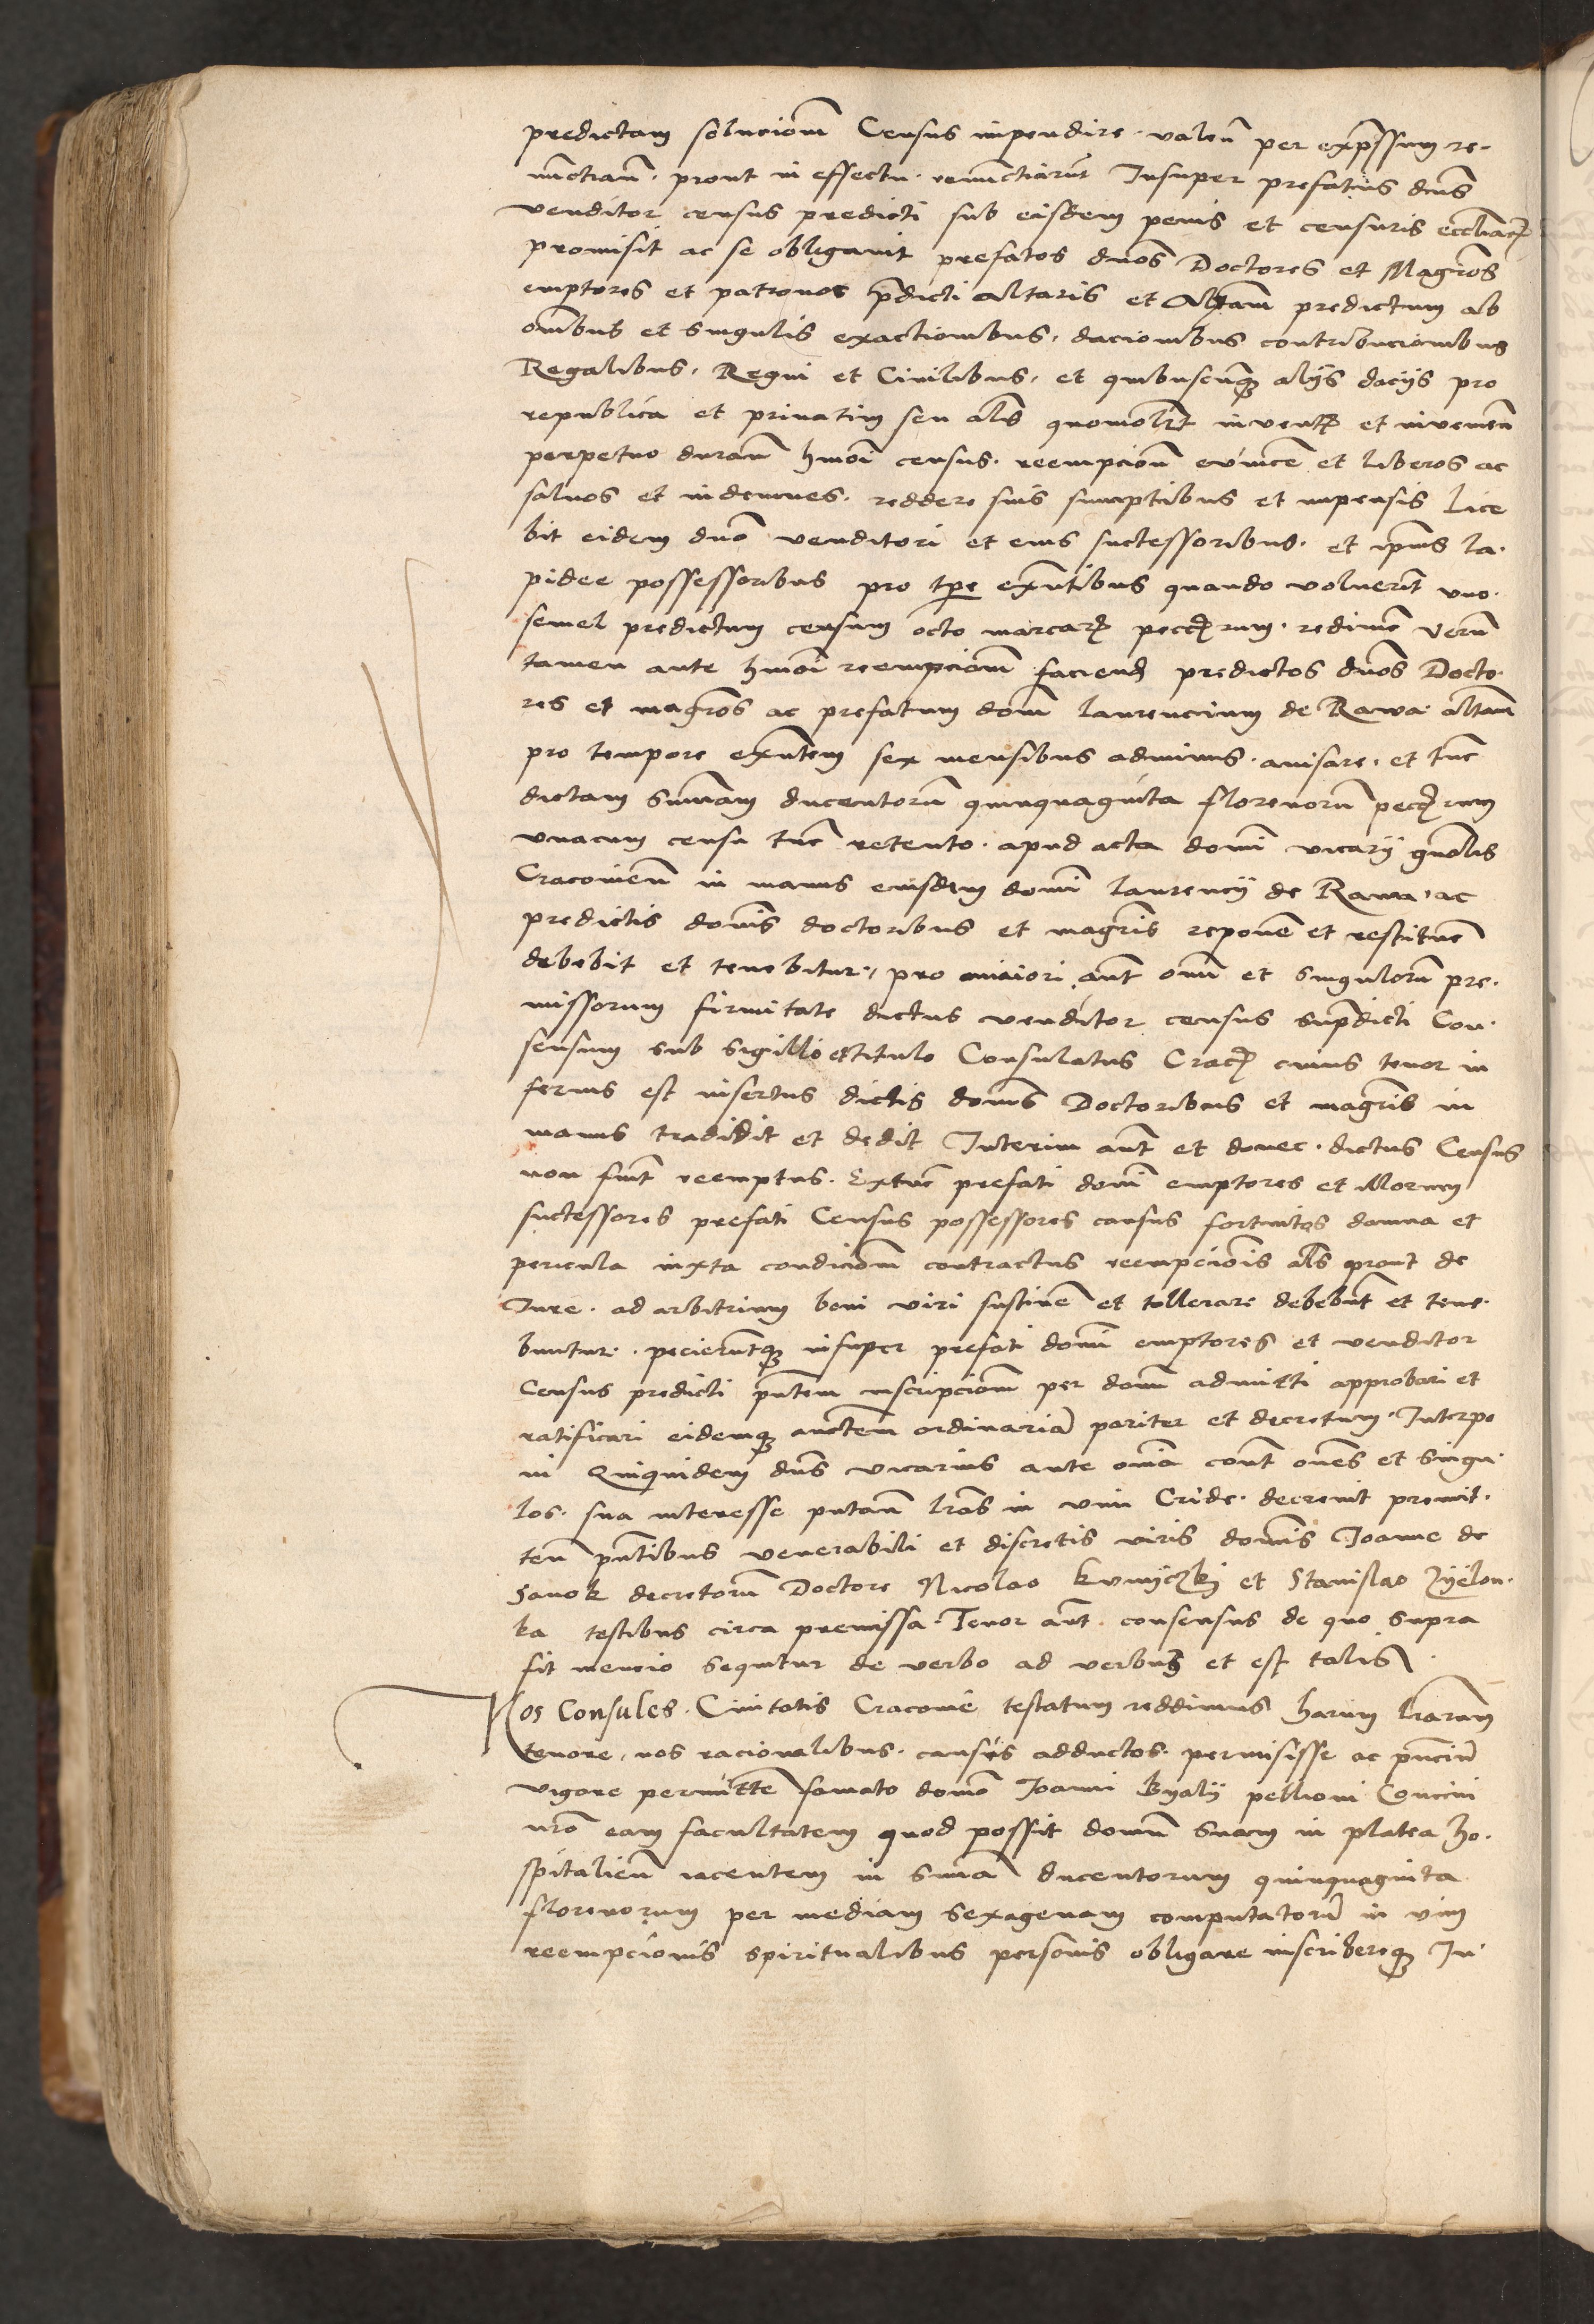 predictam soluciom̄ Census impendire · valen̄ per exp̄ssum re-
nunctian̄ · prout in effectu · renunctiarūt Insuper prefatus dn̄s
venditor census predicti sub eisdem penis et censuris eccl̄iacꝫ
promisit ac se obligauit prefatos dn̄os Doctores et Magr̄os
emptores et patronos p̄dicti altaris et Altam̄ predictum ab
om̄ibus et singulis exactionibus, dacionibus contribucionibus
Regalibus, Regni et Ciuilibus, et quibuscunqꝫ alijs dacijs pro
republica et priuatim seu al̄s quomol̄ꝫt inventꝫ et inveniēn
perpetuo duran̄ hm̄oi census · reempcion̄ evincē et liberos ac
saluos et indemnes · reddere suis sumptibus et impensis Lice
bit eidem dn̄o venditori et eius successoribus · et ipīus la-
pidee possessoribus pro tp̄e exn̄tibus quando voluerīt vno
semel predictum censum octo marcarꝫ peccꝫrum · redimē verū
tamen ante hm̄oi reempciom̄ faciendꝫ predictos dn̄os Docto-
res et magr̄os ac prefatum dom̄ Laurencium de Rawa altam̄
pro tempore exn̄tem sex mensibus adminus · auisare, et tūc
dictam summam ducentorū quinquagīta florenorū peccꝫrum
vnacum censu tūc retento · apud acta domī vicarij gn̄alis
Cracouien̄ in manus eiusdem domī laurencij de Rawa, ac
predictis domīs doctoribus et magr̄is reponē et restituē
debebit et tenebitur, pro maiori aūt om̄ et singulorū pre-
missorum firmitate dictus venditor census sup̄dicti Con-
sensum sub sigillo et titulo Consulatus Cracꝫ cuius tenor in
ferius est insertus dictis domīs Doctoribus et magr̄is in
manus tradidit et dedit Interim aūt et donec · dictus Census
non fuīt reemptus · Extūc prefati domī emptores et illorum
successores prefati Census possessores casus fortuitos damna et
pericula iuxta condiciom̄ contractus reempciōis al̄s prout de
Jure · ad arbitrium boni viri sustinē et tollerare debebūt et tene-
buntur · pecierūtqꝫ insuper prefati domī emptores et venditor
Census predicti pn̄tem inscripciom̄ per dom̄ admitti approbari et
ratificari eidemqꝫ auctem̄ ordinariā pariter et decretum · Interpo
ni Quiquidem dn̄s vicarius ante om̄ia cont̄ om̄es et singu-
los · sua interesse putan̄ lr̄as in vim Cride · decreuit promit-
ten̄ pn̄tibus venerabili et discretis viris domīs Joanne de
Sanok decretorū Doctore Nicolao Kunyczkij et Stanislao Zyelon-
ka testibus circa premissa · Tenor aūt consensus de quo supra
fit mencio sequitur de verbo ad verbum et est talis
Nos Consules · Ciuitatis Cracouiē testatum reddimus harum lr̄arum
tenore, nos racionalibus · causis adductos · permisisse ac pn̄ciū
vigore permittē famato domō Joanni Byalij pellioni Conciui
nr̄o eam facultatem quod possit domū suam in platea ho-
spitalien̄ iacentem in sum̄a ducentorum quinquaginta
florenorum per mediam sexagenam computatorū in vim
reempcionis spiritualibus personis obligare inscribereqꝫ In-